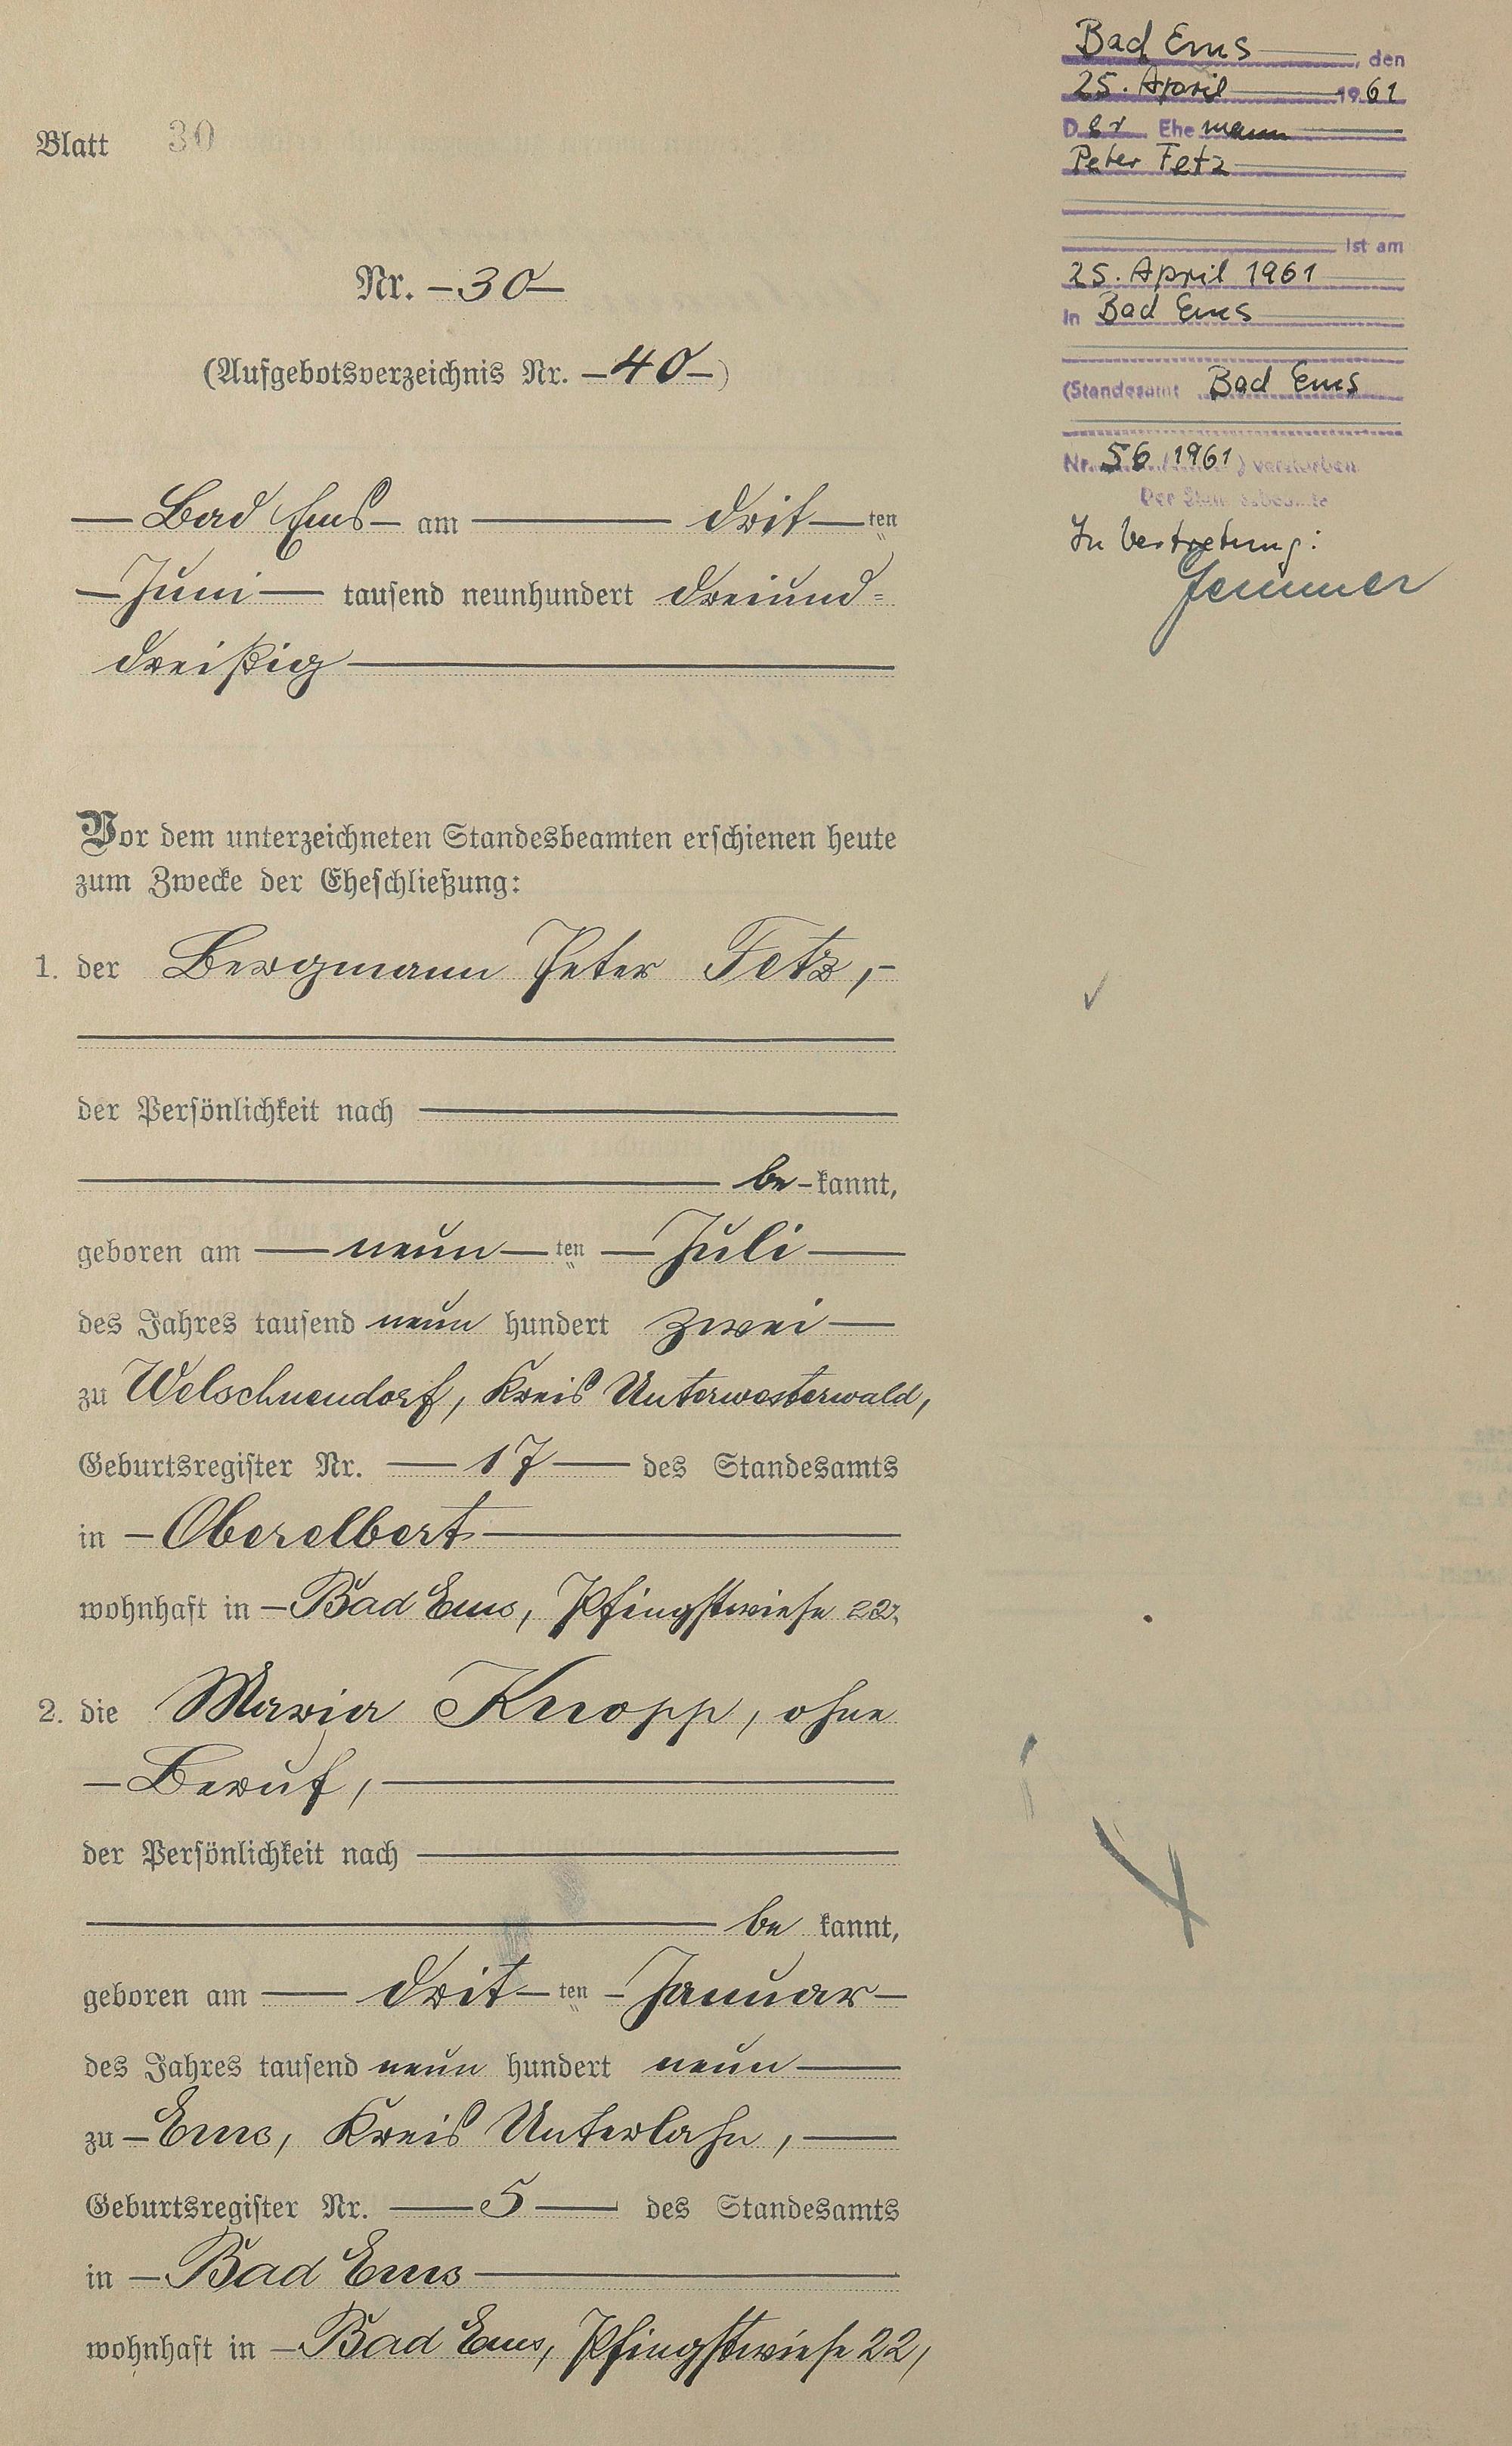 Blatt 30
Nr. – 30 –
(Aufgebotsverzeichnis Nr. – 40 – )
Bad Ems – am drit ten
Juni tausend neunhundert dreiund=
dreißig
Vor dem unterzeichneten Standesbeamten erschienen heute
zum Zwecke der Eheschließung:
1. der Bergmann Peter Fetz, –
der Persönlichkeit nach
be - kannt,
geboren am neun ten Juli
des Jahres tausend neun hundert zwei
zu Welschneudorf, Kreis Unterwesterwald,
Geburtsregister Nr. 17 des Standesamts
in – Oberelbert
wohnhaft in – Bad Ems, Pfingstwiese 22,
2. die Maria Knopp, ohne
– Beruf,
der Persönlichkeit nach
be kannt,
geboren am drit ten – Januar –
des Jahres tausend neun hundert neun
zu – Ems, Kreis Unterlahn,
Geburtsregister Nr. 5 des Standesamts
in – Bad Ems
wohnhaft in – Bad Ems, Pfingstwiese 22,
Bad Ems, den
25. April 1961
Der Ehemann
Peter Fetz
ist am
25. April 1961
in Bad Ems
(Standesamt Bad Ems
Nr. 56/1961) verstorben
Der Standesbeamte
In Vertretung: